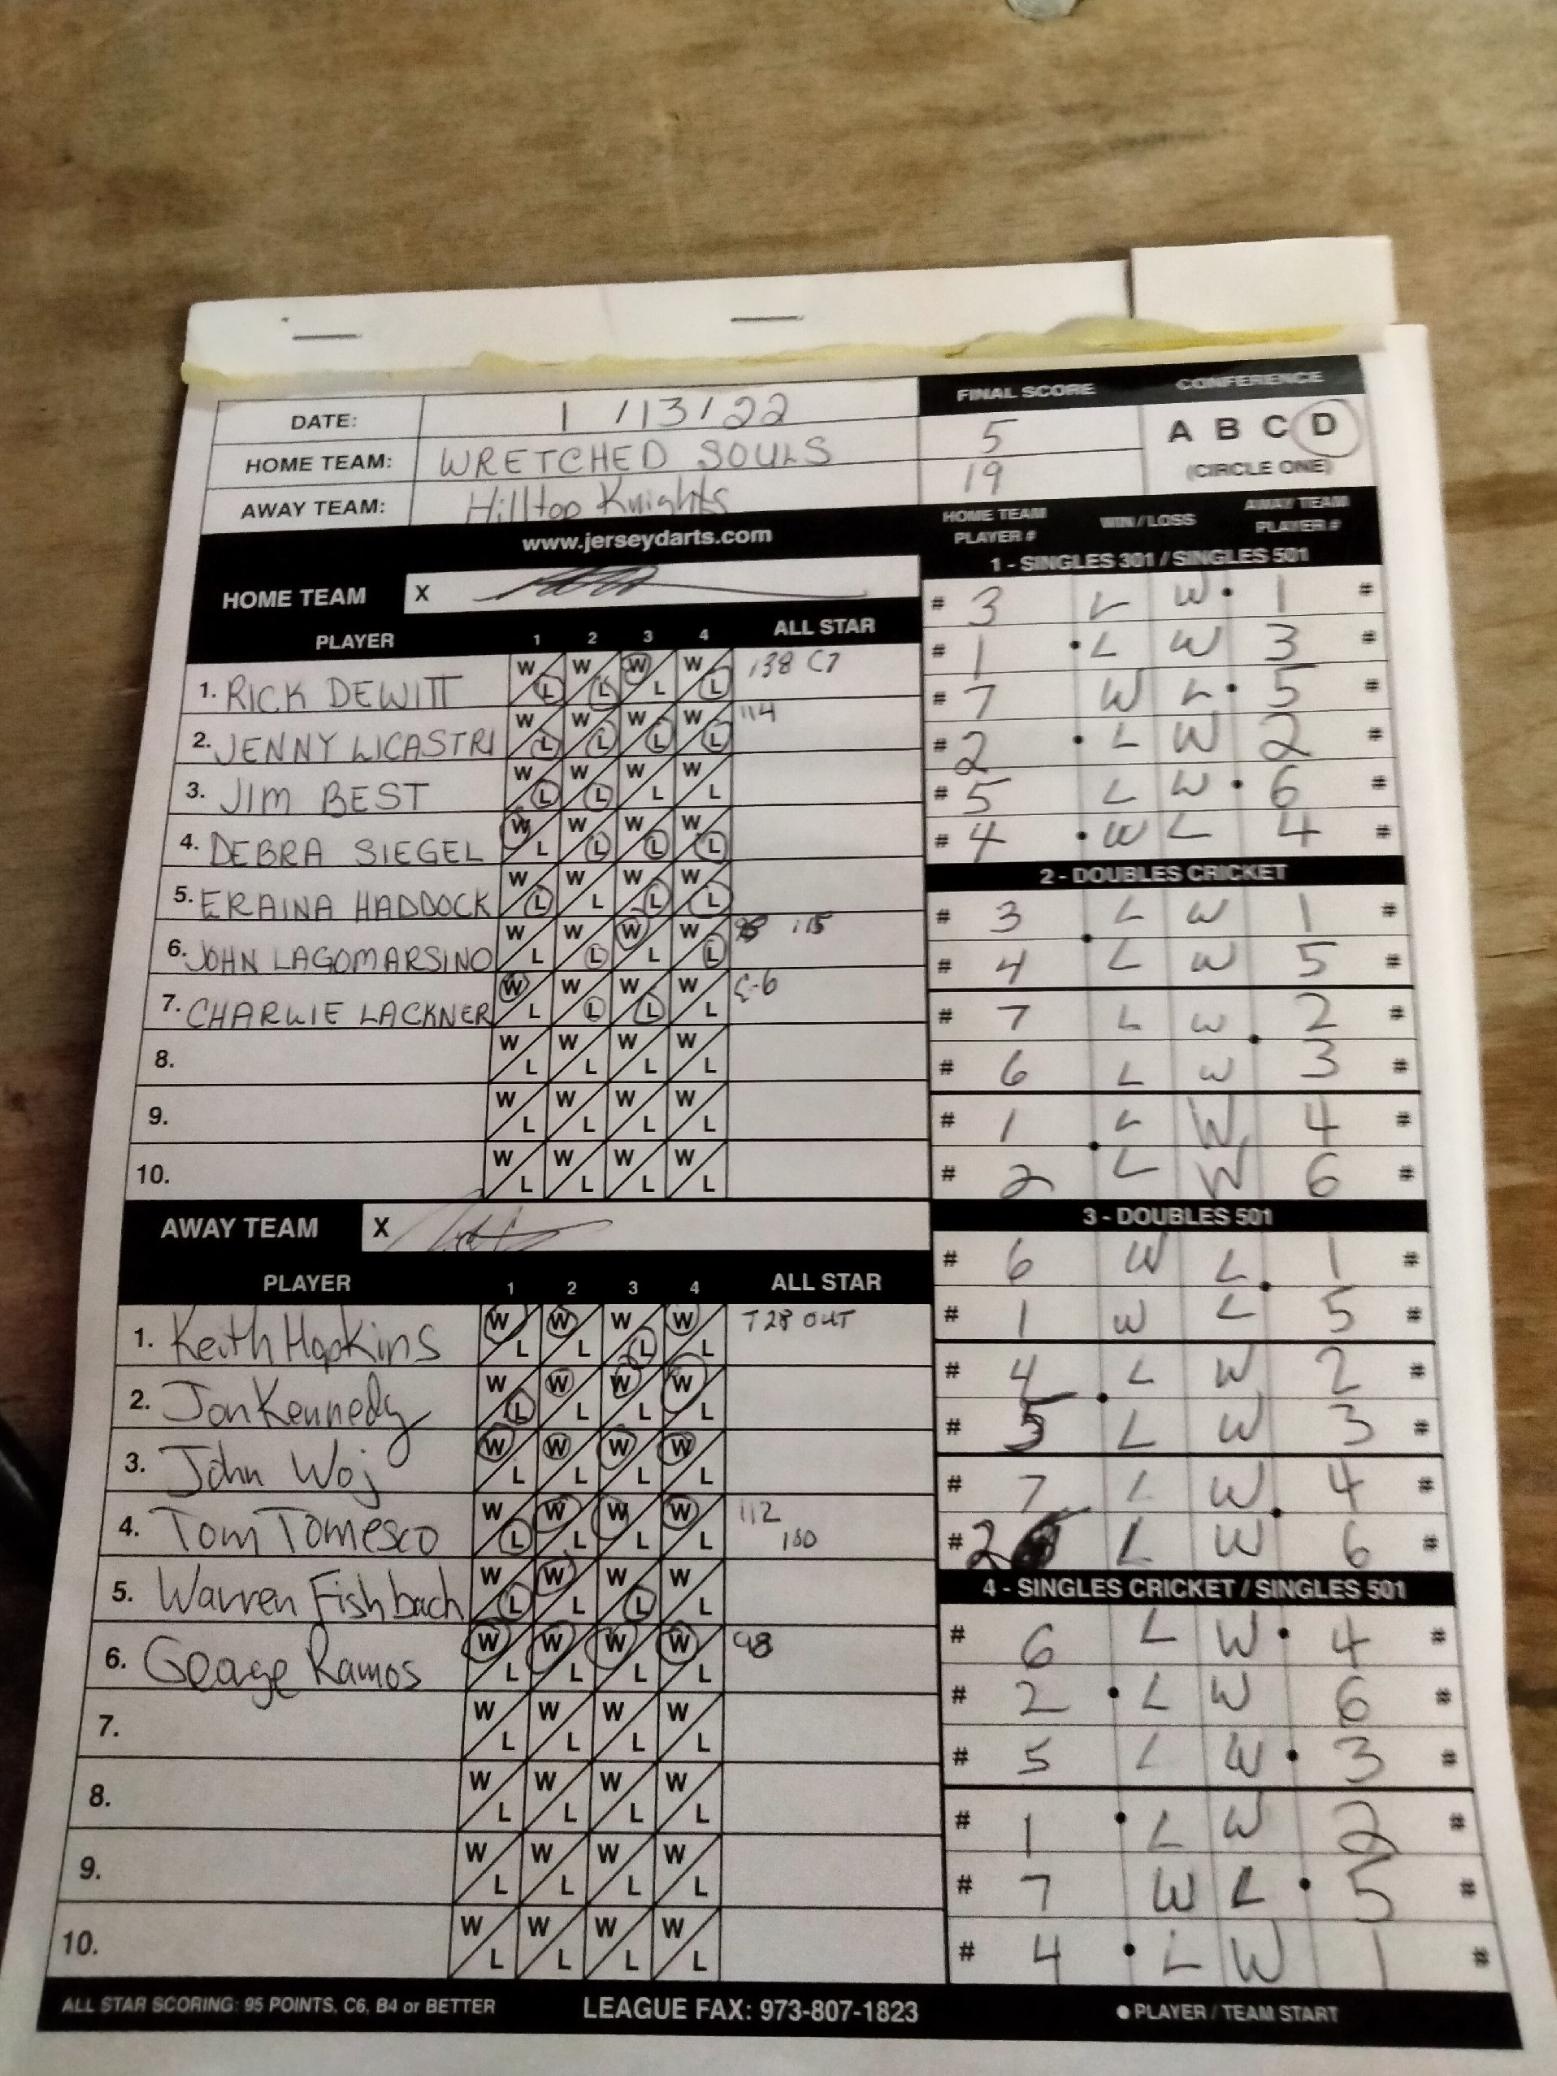 DATE: 1/13/22
HOME TEAM: WRETCHED SOULS
AWAY TEAM: Hilltop Knights
FINAL SCORE CONFERENCE
5 A B C D
19 (CIRCLE ONE)
www.jerseydarts.com
HOME TEAM X
PLAYER 1 2 3 4 ALL STAR
1. RICK DEWITT W L W L W L W L 138 C7
2. JENNY LICASTRI W L W L W L W L 114
3. JIM BEST W L W L W L W L
4. DEBRA SIEGEL W L W L W L W L
5. ERAINA HADDOCK W L W L W L W L
6. JOHN LAGOMARSINO W L W L W L W L 115
7. CHARLIE LACKNER W L W L W L W L C-6
8. W L W L W L W L
9. W L W L W L W L
10. W L W L W L W L
AWAY TEAM X
PLAYER 1 2 3 4 ALL STAR
1. Keith Hopkins W L W L W L W L T28 OUT
2. Jon Kennedy W L W L W L W L
3. John Woj W L W L W L W L
4. Tom Tomesco W L W L W L W L 112
100
5. Warren Fishbach W L W L W L W L
6. George Ramos W L W L W L W L 98
7. W L W L W L W L
8. W L W L W L W L
9. W L W L W L W L
10. W L W L W L W L
HOME TEAM PLAYER # WIN / LOSS AWAY TEAM PLAYER #
1 - SINGLES 301 / SINGLES 501
# 3 L W • 1 #
# 1 • L W 3 #
# 7 W L • 5 #
# 2 • L W 2 #
# 5 L W • 6 #
# 4 • W L 4 #
2 - DOUBLES CRICKET
# 3 L W 1 #
# 4 L W 5 #
# 7 L W 2 #
# 6 L W 3 #
# 1 L W 4 #
# 2 L W 6 #
3 - DOUBLES 501
# 6 W L 1 #
# 1 W L 5 #
# 4 L W 2 #
# 5 L W 3 #
# 7 L W 4 #
# 2 L W 6 #
4 - SINGLES CRICKET / SINGLES 501
# 6 L W • 4 #
# 2 • L W 6 #
# 5 L W • 3 #
# 1 • L W 2 #
# 7 W L • 5 #
# 4 • L W 1 #
ALL STAR SCORING: 95 POINTS, C6, B4 or BETTER LEAGUE FAX: 973-807-1823 ● PLAYER / TEAM START